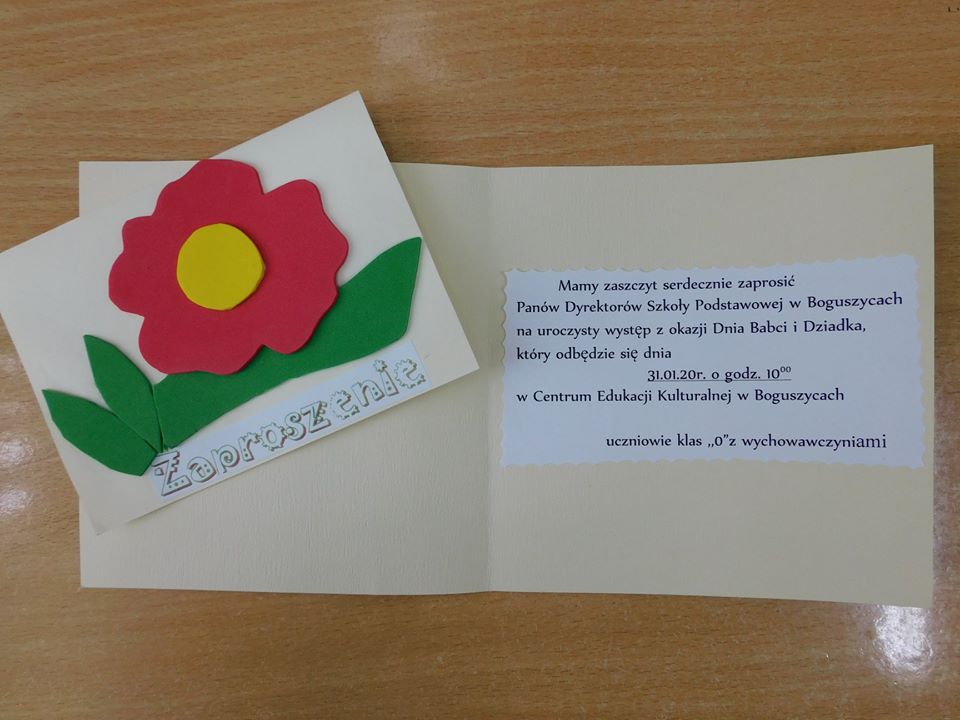 Zaproszenie
Mamy zaszczyt serdecznie zaprosić
Panów Dyrektorów Szkoły Podstawowej w Boguszycach
na uroczysty występ z okazji Dnia Babci i Dziadka,
który odbędzie się dnia
31.01.20r. o godz. 10⁰⁰
w Centrum Edukacji Kulturalnej w Boguszycach
uczniowie klas ,,0”z wychowawczyniami